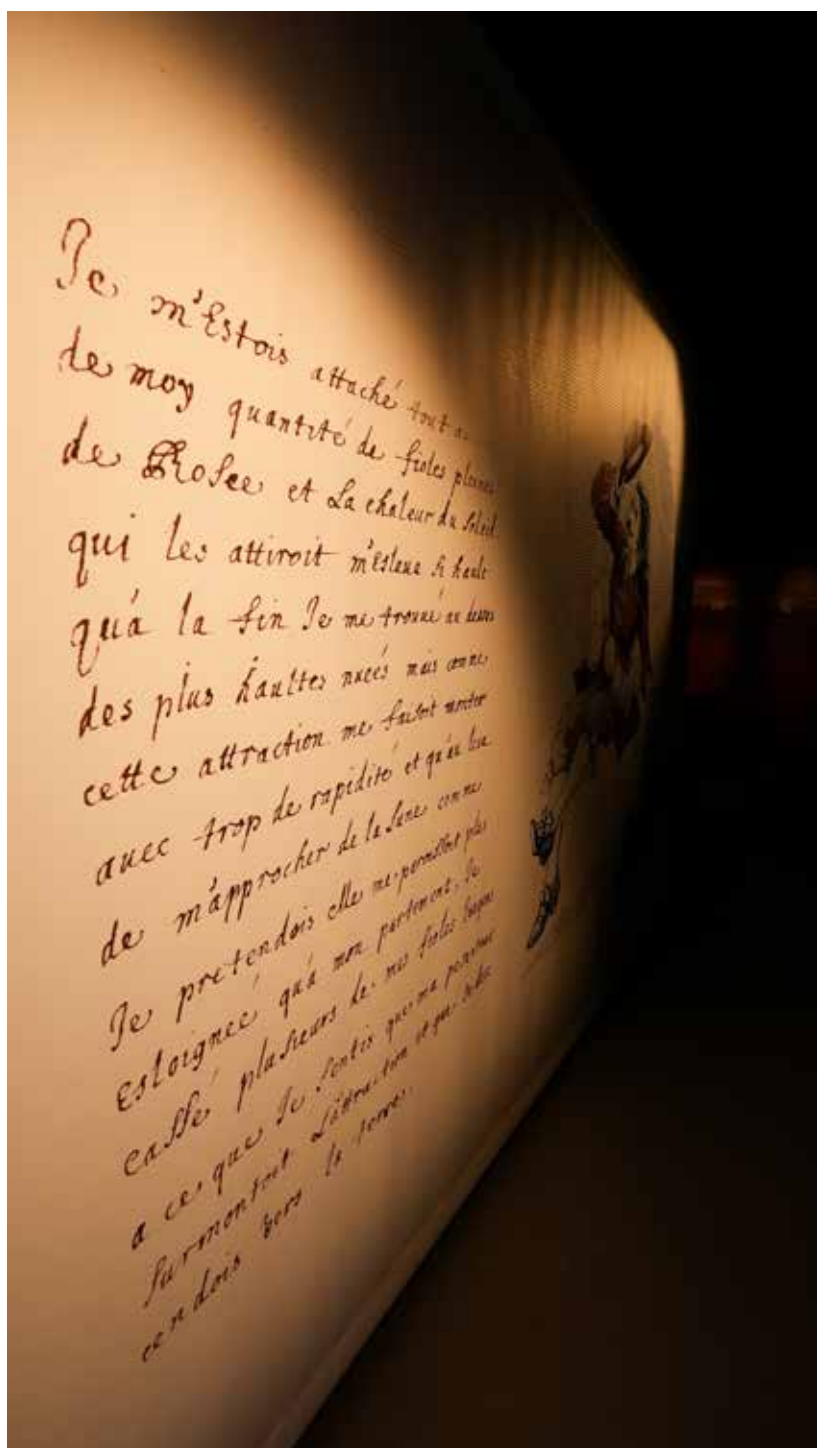 Je m'Estois attaché tout au
de moy quantité de fioles pleines
de Rosee et La chaleur du Soleil
qui les attiroit m'esleua si hault
qu'a la fin Je me trouué au dessus
des plus haultes nueés mais comme
cette attraction me faisoit monter
auec trop de rapidité et qu'au lieu
de m'approcher de la Lune comme
Je pretendois elle me paroissoit plus
Esloigneé qu'a mon partement, Je
cassé plusieurs de mes fioles Jusques
a ce que Je sentis que ma pesanteur
surmontoit L'attraction et que Je des
cendois vers la terre.